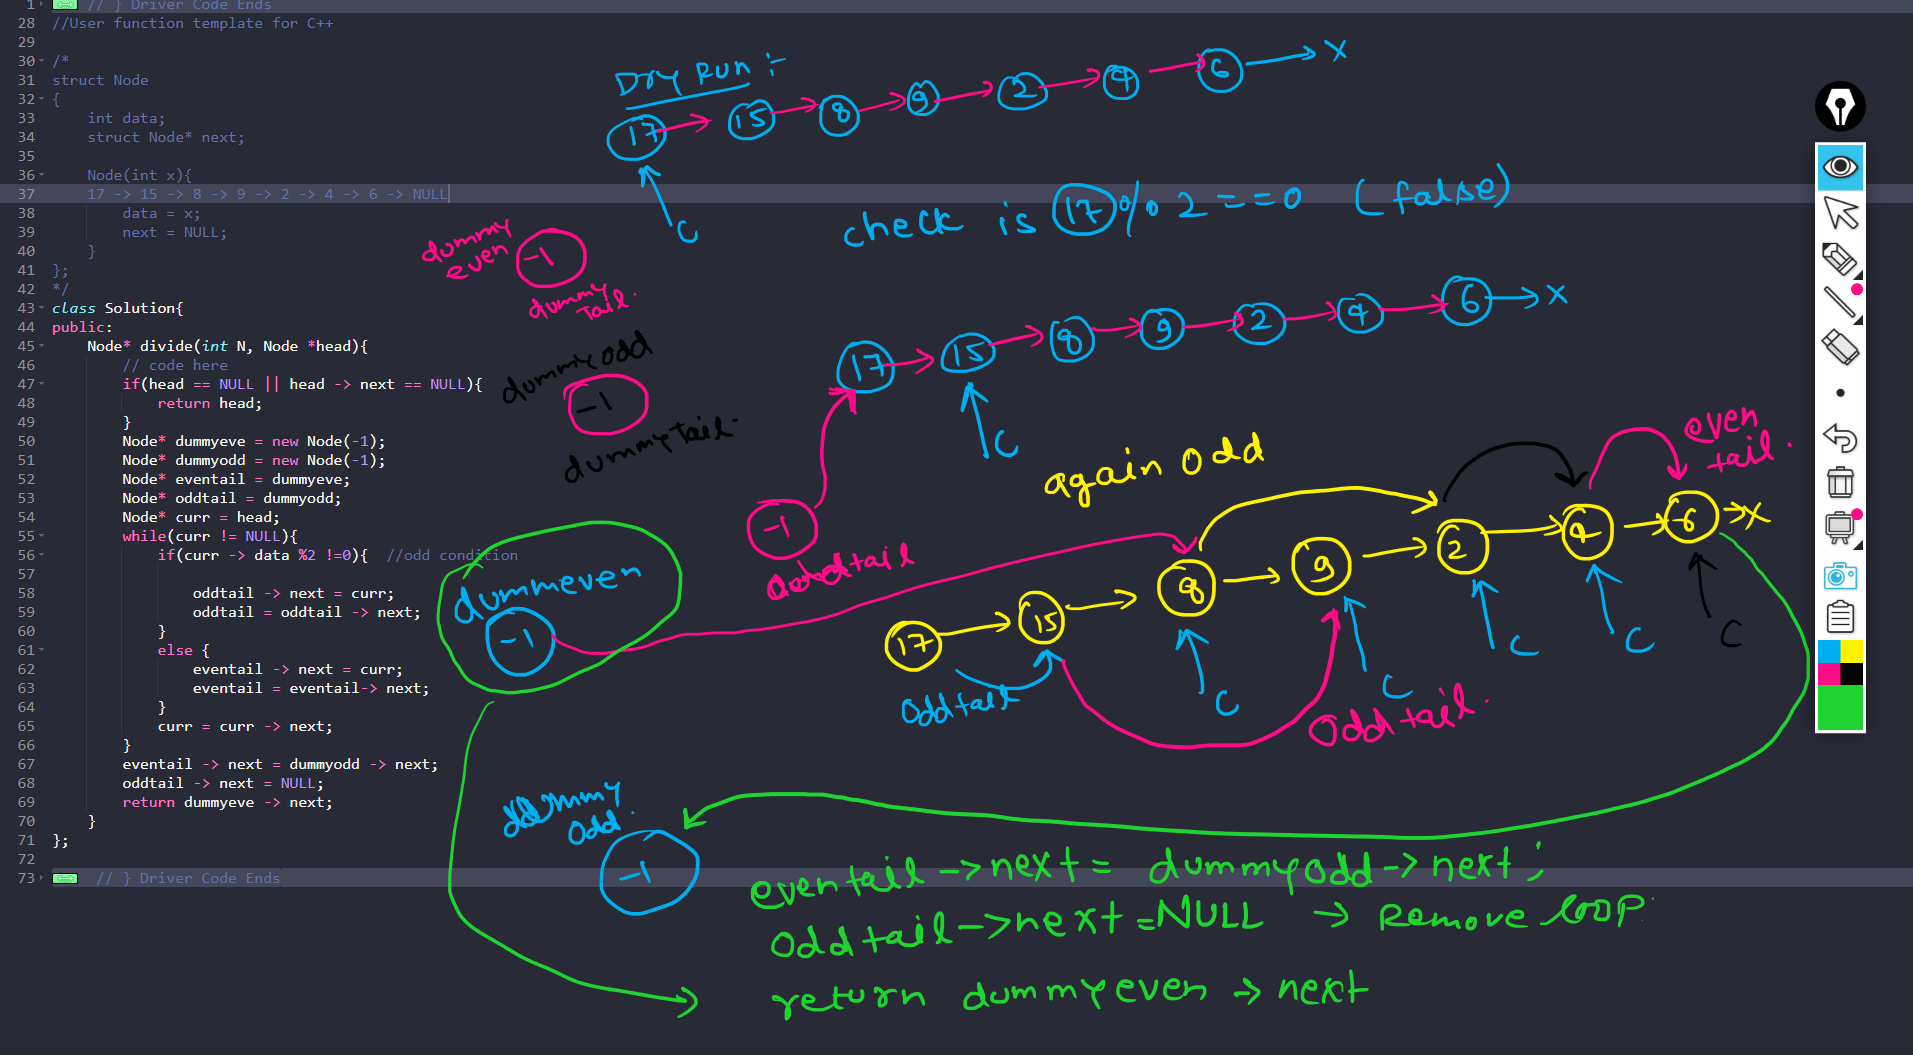 1 // } Driver Code Ends
28 //User function template for C++
29
30 /*
31 struct Node
32 {
33     int data;
34     struct Node* next;
35
36     Node(int x){
37     17 -> 15 -> 8 -> 9 -> 2 -> 4 -> 6 -> NULL
38         data = x;
39         next = NULL;
40     }
41 };
42 */
43 class Solution{
44 public:
45     Node* divide(int N, Node *head){
46         // code here
47         if(head == NULL || head -> next == NULL){
48             return head;
49         }
50         Node* dummyeve = new Node(-1);
51         Node* dummyodd = new Node(-1);
52         Node* eventail = dummyeve;
53         Node* oddtail = dummyodd;
54         Node* curr = head;
55         while(curr != NULL){
56             if(curr -> data %2 !=0){  //odd condition
57
58                 oddtail -> next = curr;
59                 oddtail = oddtail -> next;
60             }
61             else {
62                 eventail -> next = curr;
63                 eventail = eventail-> next;
64             }
65             curr = curr -> next;
66         }
67         eventail -> next = dummyodd -> next;
68         oddtail -> next = NULL;
69         return dummyeve -> next;
70     }
71 };
72
73 // } Driver Code Ends
Dry Run :-
17 15 8 9 2 4 6 X
C
check is 17 % 2 == 0 (false)
dummy even -1
dummy tail.
17 15 8 9 2 4 6 X
C
dummy odd
-1
dummy tail.
-1
oddtail
again odd
even tail.
17 15 8 9 2 4 6 X
C C C C C
oddtail
oddtail.
dummeven
-1
dummy odd.
-1
eventail -> next = dummyodd -> next;
oddtail -> next = NULL -> Remove loop.
return dummyeven -> next